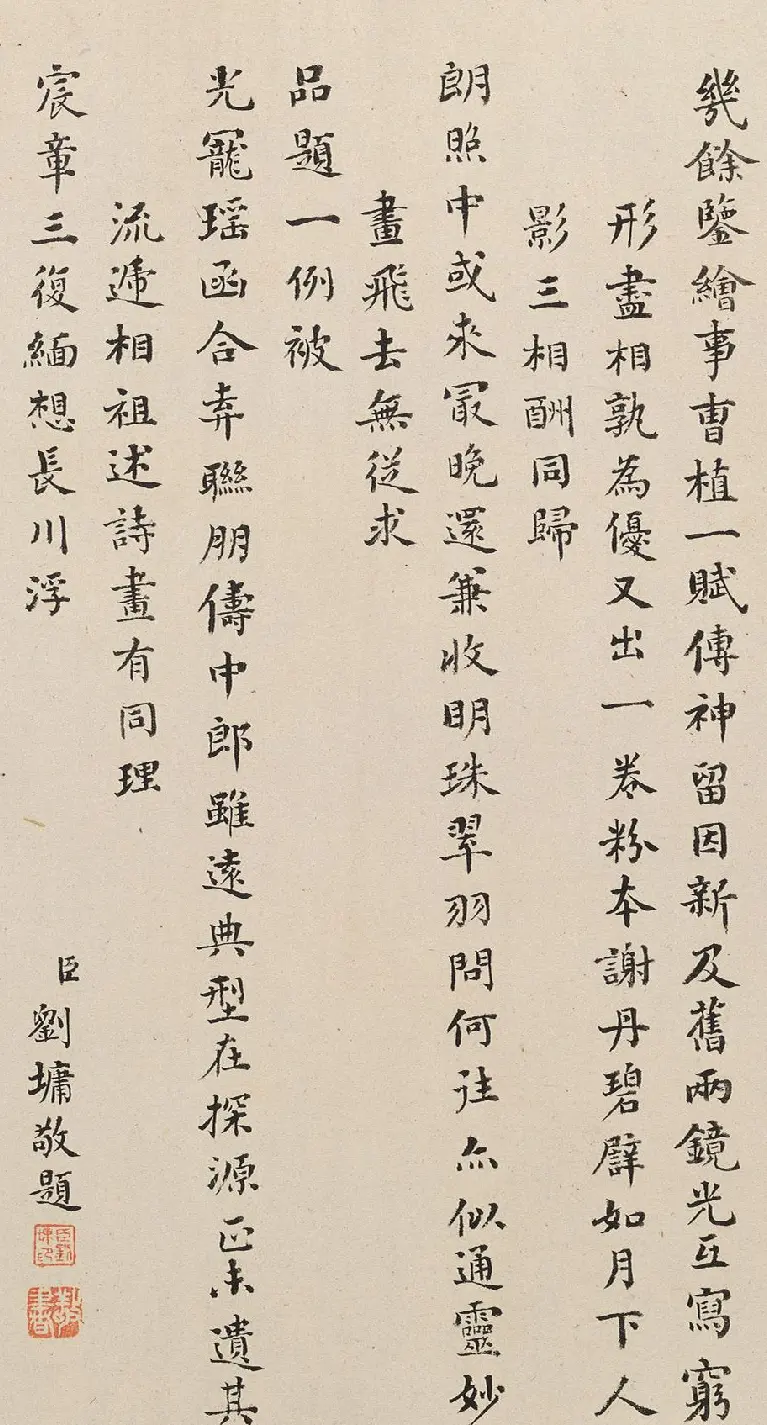 幾餘鑒繪事曹植一賦傳神留因新及舊兩鏡光互寫窮
形盡相孰為優又出一卷粉本謝丹碧譬如月下人
影三相酬同歸
朗照中或求冣晚還兼收明珠翠羽問何往亦似通靈妙
畫飛去無從求
品題一例被
光寵瑶函合弆聯朋儔中郎雖遠典型在探源正未遺其
流遞相祖述詩畫有同理
宸章三復緬想長川浮
臣劉墉敬題
臣劉墉印